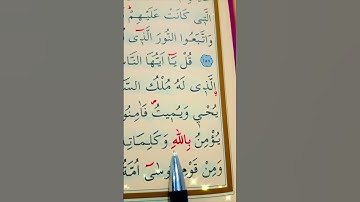 الَّتٖي كَانَتْ عَلَيْهِمْ
وَاتَّبَعُوا النُّورَ الَّذٖٓي
قُلْ يَٓا اَيُّهَا النَّا
اَلَّذٖي لَهُ مُلْكُ السَّ
يُحْيٖ وَيُمٖيتُ فَاٰمِنُو
يُؤْمِنُ بِاللّٰهِ وَكَلِمَاتِ
وَمِنْ قَوْمِ مُوسٰٓى اُمَّةٌ